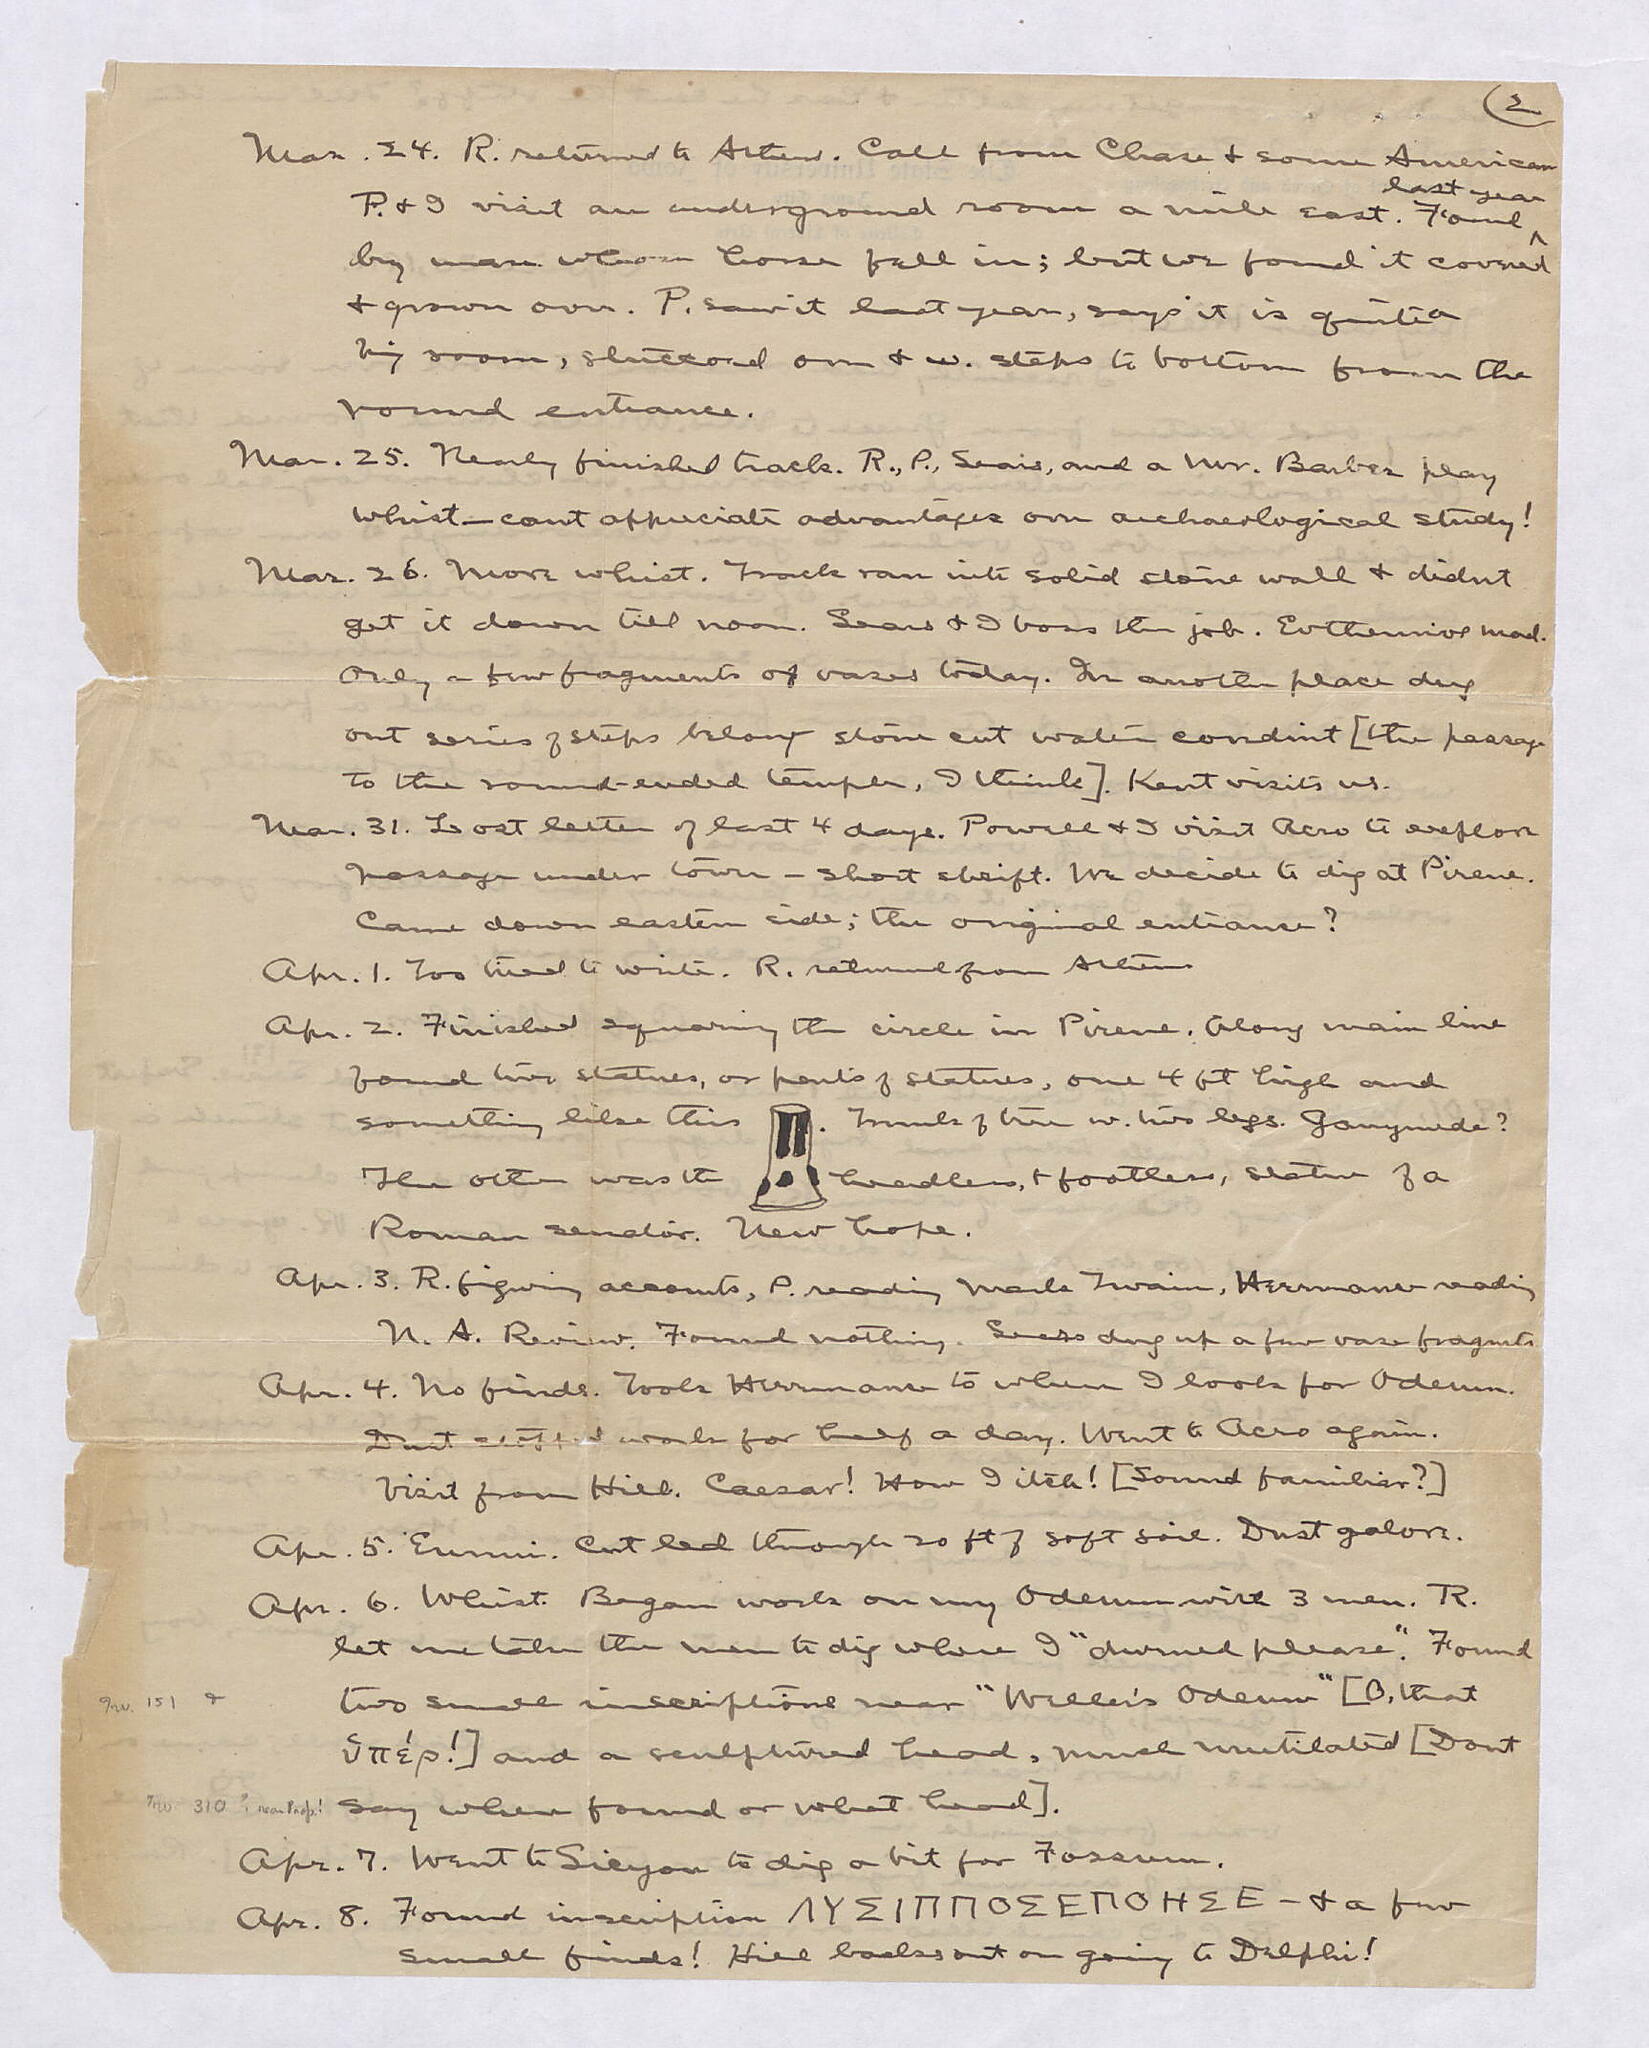 2
Mar. 24. R. returned to Athens. Call from Chase & some American
last year
P. & I visit an underground room a mile east. Found
by man whose horse fell in; but we found it covered
& grown over. P. saw it last year, says it is quite a
big room, stuccoed over & w. steps to bottom from the
round entrance.
Mar. 25. Nearly finished track. R., P., Sears, and a Mr. Barber play
whist — cant appreciate advantages over archaeological study!
Mar. 26. More whist. Track ran into solid stone wall & didnt
get it down till noon. Sears & I boss the job. Evthemios mad.
Only a few fragments of vases today. In another place dug
out series of steps belong stone cut water conduit [the passage
to the round-ended temple, I think]. Kent visits us.
Mar. 31. Lost letter of last 4 days. Powell & I visit Acro to explore
passage under town – short shrift. We decide to dig at Pirene.
Came down eastern side; the original entrance?
Apr. 1. Too tired to write. R. returned from Athens
Apr. 2. Finished squaring the circle in Pirene. Along main line
found two statues, or parts of statues, one 4 ft high and
something like this . Trunk of tree w. two legs. Ganymede?
The other was the headless, & footless, statue of a
Roman senator. New hope.
Apr. 3. R. figuring accounts, P. reading Mark Twain, Herrmance reading
N. A. Review. Found nothing. Sears dug up a few vase fragmts
Apr. 4. No finds. Took Herrmance to where I look for Odeum.
Dust stopped work for half a day. Went to Acro again.
Visit from Hill. Caesar! How I itch! [Sound familiar?]
Apr. 5. Ennui. Cut led through 20 ft of soft soil. Dust galore.
Apr. 6. Whist. Began work on my Odeum with 3 men. R.
let me take the men to dig where I "durned please". Found
Inv. 151 & two small inscriptions near "Weller's Odeum" [O, that
ὑπέρ!] and a sculptured head, much mutilated [Dont
Inv. 310 ? near Prop.! say where found or what head].
Apr. 7. Went to Sicyon to dig a bit for Fossum.
Apr. 8. Found inscription ΛΥΣΙΠΠΟΣΕΠΟΗΣΕ – & a few
small finds! Hill backs out on going to Delphi!